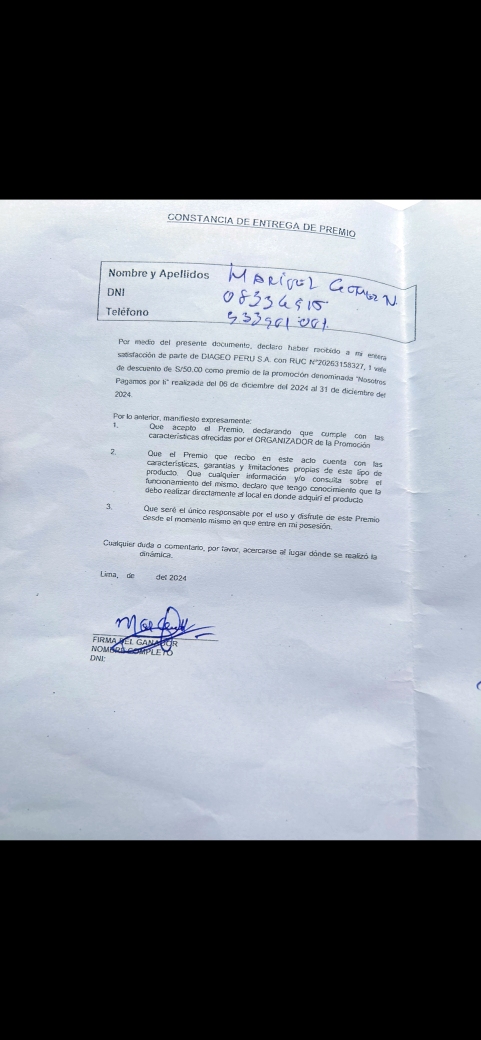 CONSTANCIA DE ENTREGA DE PREMIO
Nombre y Apellidos MARIVEL GOMEZ N.
DNI 08334915
Teléfono 933901001
Por medio del presente documento, declaro haber recibido a mi entera
satisfacción de parte de DIAGEO PERU S.A. con RUC N°20263158327, 1 vale
de descuento de S/50.00 como premio de la promoción denominada "Nosotros
Pagamos por ti" realizada del 06 de diciembre del 2024 al 31 de diciembre del
2024.
Por lo anterior, manifiesto expresamente:
1. Que acepto el Premio, declarando que cumple con las
características ofrecidas por el ORGANIZADOR de la Promoción
2. Que el Premio que recibo en este acto cuenta con las
características, garantías y limitaciones propias de este tipo de
producto. Que cualquier información y/o consulta sobre el
funcionamiento del mismo, declaro que tengo conocimiento que la
debo realizar directamente al local en donde adquirí el producto
3. Que seré el único responsable por el uso y disfrute de este Premio
desde el momento mismo en que entre en mi posesión.
Cualquier duda o comentario, por favor, acercarse al lugar dónde se realizó la
dinámica.
Lima, de del 2024
FIRMA DEL GANADOR
NOMBRE COMPLETO
DNI: